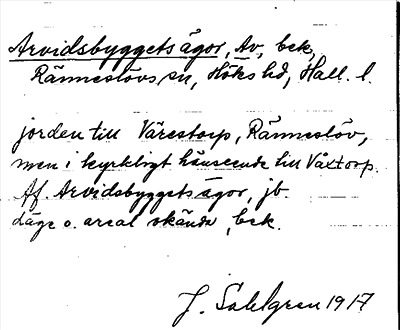 Arvidsbyggets ägor, Av, bek,
Ränneslövs sn, Höks hd, Hall. l.
jorden till Vårestorp, Ränneslöv,
men i kyrkligt hänseende till Våxtorp.
Af. Arvidsbyggets ägor, jb.
Läge o. areal okända, bek.
J. Sahlgren 1917